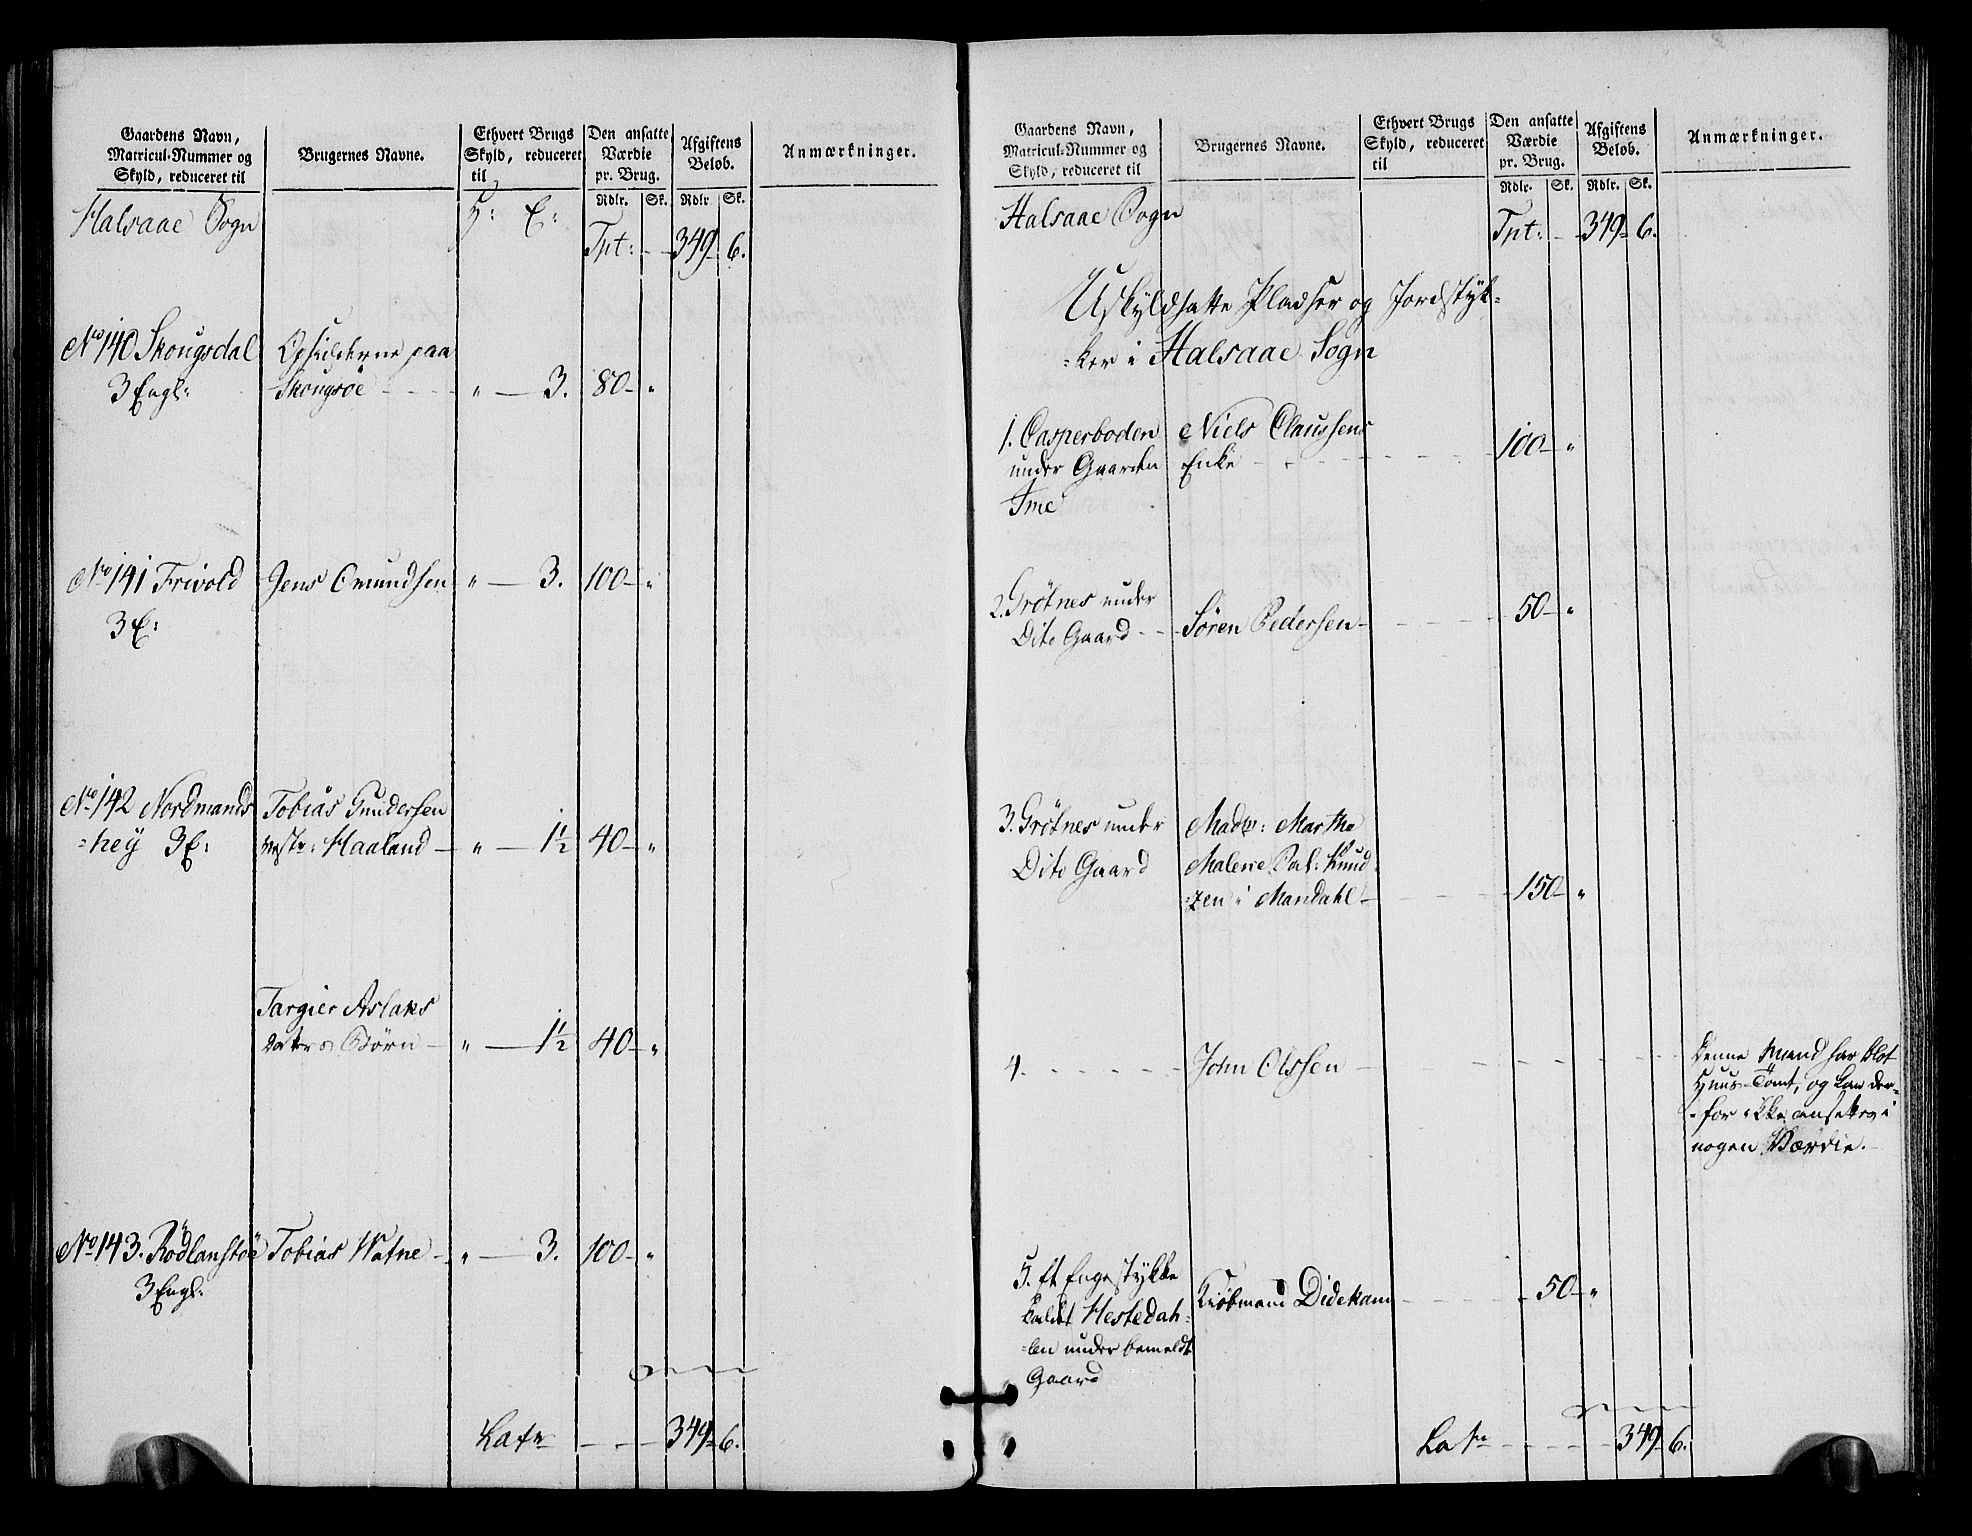 Gaardens Navn,
Matricul-Nummer og
Skyld, reduceret til
Brugernes Navne.
Ethvert Brugs
Skyld, reduceret
til
Den ansatte
Værdie
pr. Brug.
Afgiftens
Beløb.
Anmærkninger.
Rdlr. Sk. Rdlr Sk.
Halsaae Sogn
H: E:
Tpt: - - 349 - 6.
No 140 Skougsdal Opsidderne paa
3 Engl: Skougsøe - - - - " — 3. 80 - "
No 141 Frivold Jens Omundsen " — 3. 100 - "
3 E:
No 142 Nordmands Tobias Gundersen
=hey 3 E: vestr: Haaland — " — 1½ 40 - "
Targier Aslaks
Børn — " — 1½ 40 - "
No 143. Rödlanstöe Tobias Watne - " — 3. 100 - "
3 Engl:
Latr - - - 349 - 6.
Gaardens Navn,
Matricul-Nummer og
Skyld, reduceret til
Brugernes Navne.
Ethvert Brugs
Skyld, reduceret
til
Den ansatte
Værdie
pr. Brug.
Afgiftens
Beløb.
Anmærkninger.
Rdlr. Sk. Rdlr. Sk.
Halsaae Sogn
Tpt: - - 349 - 6.
Uskyldsatte Pladser og Jordstyk=
=ker i Halsaae Sogn
1. Casperboden Niels Claussens
under Gaarden Enke - - - - - - 100 - "
Ime
2. Grötnes under
Dito Gaard - - - Sören Pedersen - - - - - 50 - "
3. Grötnes under Madm: Marthe
Dito Gaard Malene Sal: Knud=
=zen i Mandahl - - - - 150 - "
4. - - - - - - John Olssen - - - - - - -
Denne Mand har blot
Huus-Tomt, og kan der=
=for ikke ansættes i
nogen Værdie.
5. Et Engestykke
kaldet Hestedah= Kiöbmand Didekam - - - - 50 - "
=len under bemeldte
Gaard
Latr - - - - - 349 - 6.